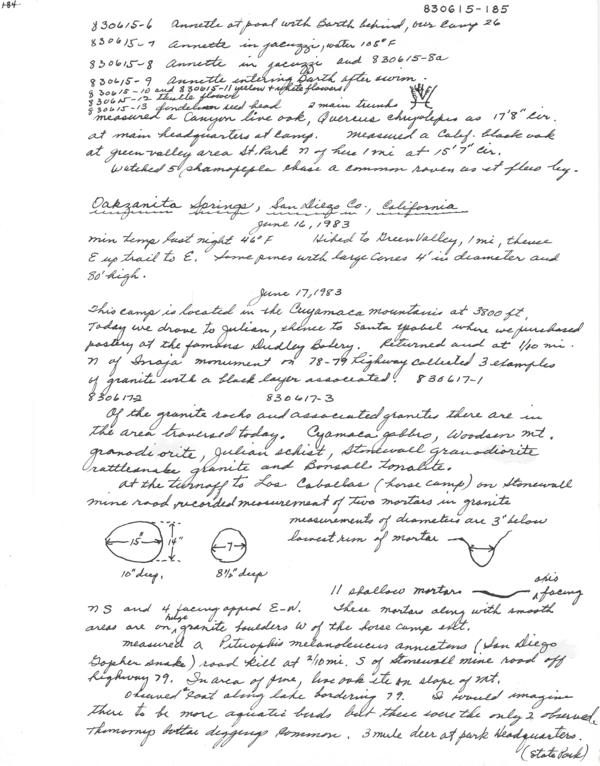 184
830615-185
830615-6 Annette at pool with Barth behind, our camp 26
830615-7 Annette in jacuzzi, water 105°F
830615-8 Annette in jacuzzi and 830615-8a
830615-9 Annette entering Barth after swim.
830615-10 and 830615-11 yellow + white flowers
830615-12 thistle flower
830615-13 dandelion seed head 2 main trunks
measured a Canyon live oak, Quercus chrysolepis as 17'8" cir.
at main headquarters at camp. Measured a Calif. black oak
at green valley area St. Park N of here 1 mi at 15'7" cir.
Watched 5 phainopepla chase a common raven as it flew by.
Oakzanita Springs, San Diego Co., California
June 16, 1983
min temp last night 46°F Hiked to Green Valley, 1 mi, thence
E up trail to E. Some pines with large cones 4' in diameter and
80' high.
June 17, 1983
This camp is located in the Cuyamaca mountains at 3800 ft.
Today we drove to Julian, thence to Santa Ysabel where we purchased
pastry at the famous Dudley Bakery. Returned and at 1/10 mi.
N of Inaja monument on 78-79 highway collected 3 examples
of granite with a black layer associated. 830617-1
830617-2 830617-3
Of the granite rocks and associated granites there are in
the area traversed today. Cyamaca gabbro, Woodson Mt.
granodiorite, Julian schist, Stonewall granodiorite
rattlesnake granite and Bonsall tonalite.
At the turnoff to Los Caballas (horse camp) on Stonewall
mine road, recorded measurement of two mortars in granite
measurements of diameters are 3" below
lowest rim of mortar
15" 14" 7"
10" deep, 8 1/2" deep
11 shallow mortars axis facing
N S and 4 facing approx E-W. These mortars along with smooth
areas are on huge granite boulders W of the horse camp ent.
measured a Pituophis melanoleucus annectens (San Diego
Gopher snake) road kill at 2/10 mi. S of Stonewall mine road off
highway 79. In area of pine, live oak etc on slope of mt.
Observed 2 coot along lake bordering 79. I would imagine
there to be more aquatic birds but these were the only 2 observed.
Thomomys bottae diggings common. 3 mule deer at park headquarters.
(State Park)